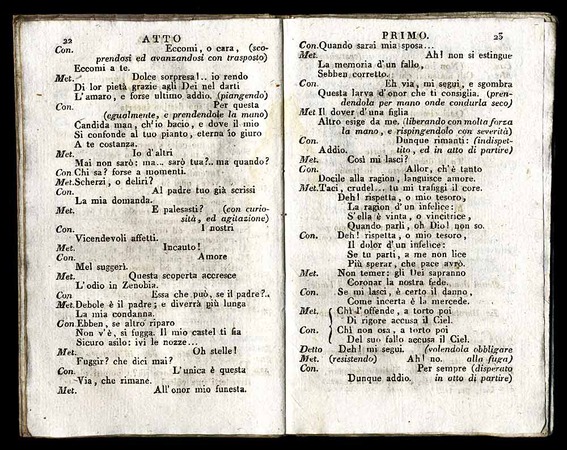 22 ATTO
Con. Eccomi, o cara, (sco-
prendosi ed avanzandosi con trasposto)
Eccomi a te.
Met. Dolce sorpresa!.. io rendo
Di lor pietà grazie agli Dei nel darti
L'amaro, e forse ultimo addio. (piangendo)
Con. Per questa
(egualmente, e prendendole la mano)
Candida man, ch'io bacio, e dove il mio
Si confonde al tuo pianto, eterna io giuro
A te costanza.
Met. Io d'altri
Mai non sarò: ma... sarò tua?.. ma quando?
Con Chi sa? forse a momenti.
Met. Scherzi, o deliri?
Con. Al padre tuo già scrissi
La mia domanda.
Met. E palesasti? (con curio-
sità, ed agitazione)
Con. I nostri
Vicendevoli affetti.
Met. Incauto!
Con. Amore
Mel suggerì.
Met. Questa scoperta accresce
L'odio in Zenobia.
Con Essa che può, se il padre?..
Met. Debole è il padre; e diverrà più lunga
La mia condanna.
Con Ebben, se altro riparo
Non v'è, si fugga. Il mio castel ti sia
Sicuro asilo: ivi le nozze...
Met. Oh stelle!
Fuggir? che dici mai?
Con. L'unica è questa
Via, che rimane.
Met. All'onor mio funesta.
PRIMO. 23
Con. Quando sarai mia sposa...
Met. Ah! non si estingue
La memoria d'un fallo,
Sebben corretto.
Con. Eh via, mi segui, e sgombra
Questa larva d'onor che ti consiglia. (pren-
dendola per mano onde condurla seco)
Met Il dover d'una figlia
Altro esige da me. (liberando con molta forza
la mano, e rispingendolo con severità)
Con. Dunque rimanti: (indispet-
Addio. tito, ed in atto di partire)
Met. Così mi lasci?
Con. Allor, ch'è tanto
Docile alla ragion, languisce amore.
Met. Taci, crudel... tu mi trafiggi il core.
Deh! rispetta, o mio tesoro,
La ragion d'un infelice:
S'ella è vinta, o vincitrice,
Quando parli, oh Dio! non so.
Con. Deh! rispetta, o mio tesoro,
Il dolor d'un infelice:
Se tu parti, a me non lice
Più sperar, che pace avrò.
Met. Non temer: gli Dei sapranno
Coronar la nostra fede.
Con. Se mi lasci, è certo il danno,
Come incerta è la mercede.
Met. Chi l'offende, a torto poi
Di rigore accusa il Ciel.
Con. Chi non osa, a torto poi
Del suo fallo accusa il Ciel.
Detto Deh! mi segui. (volendola obbligare
Met. (resistendo) Ah! no. alla fuga)
Con. Per sempre (disperato
Dunque addio. in atto di partire)